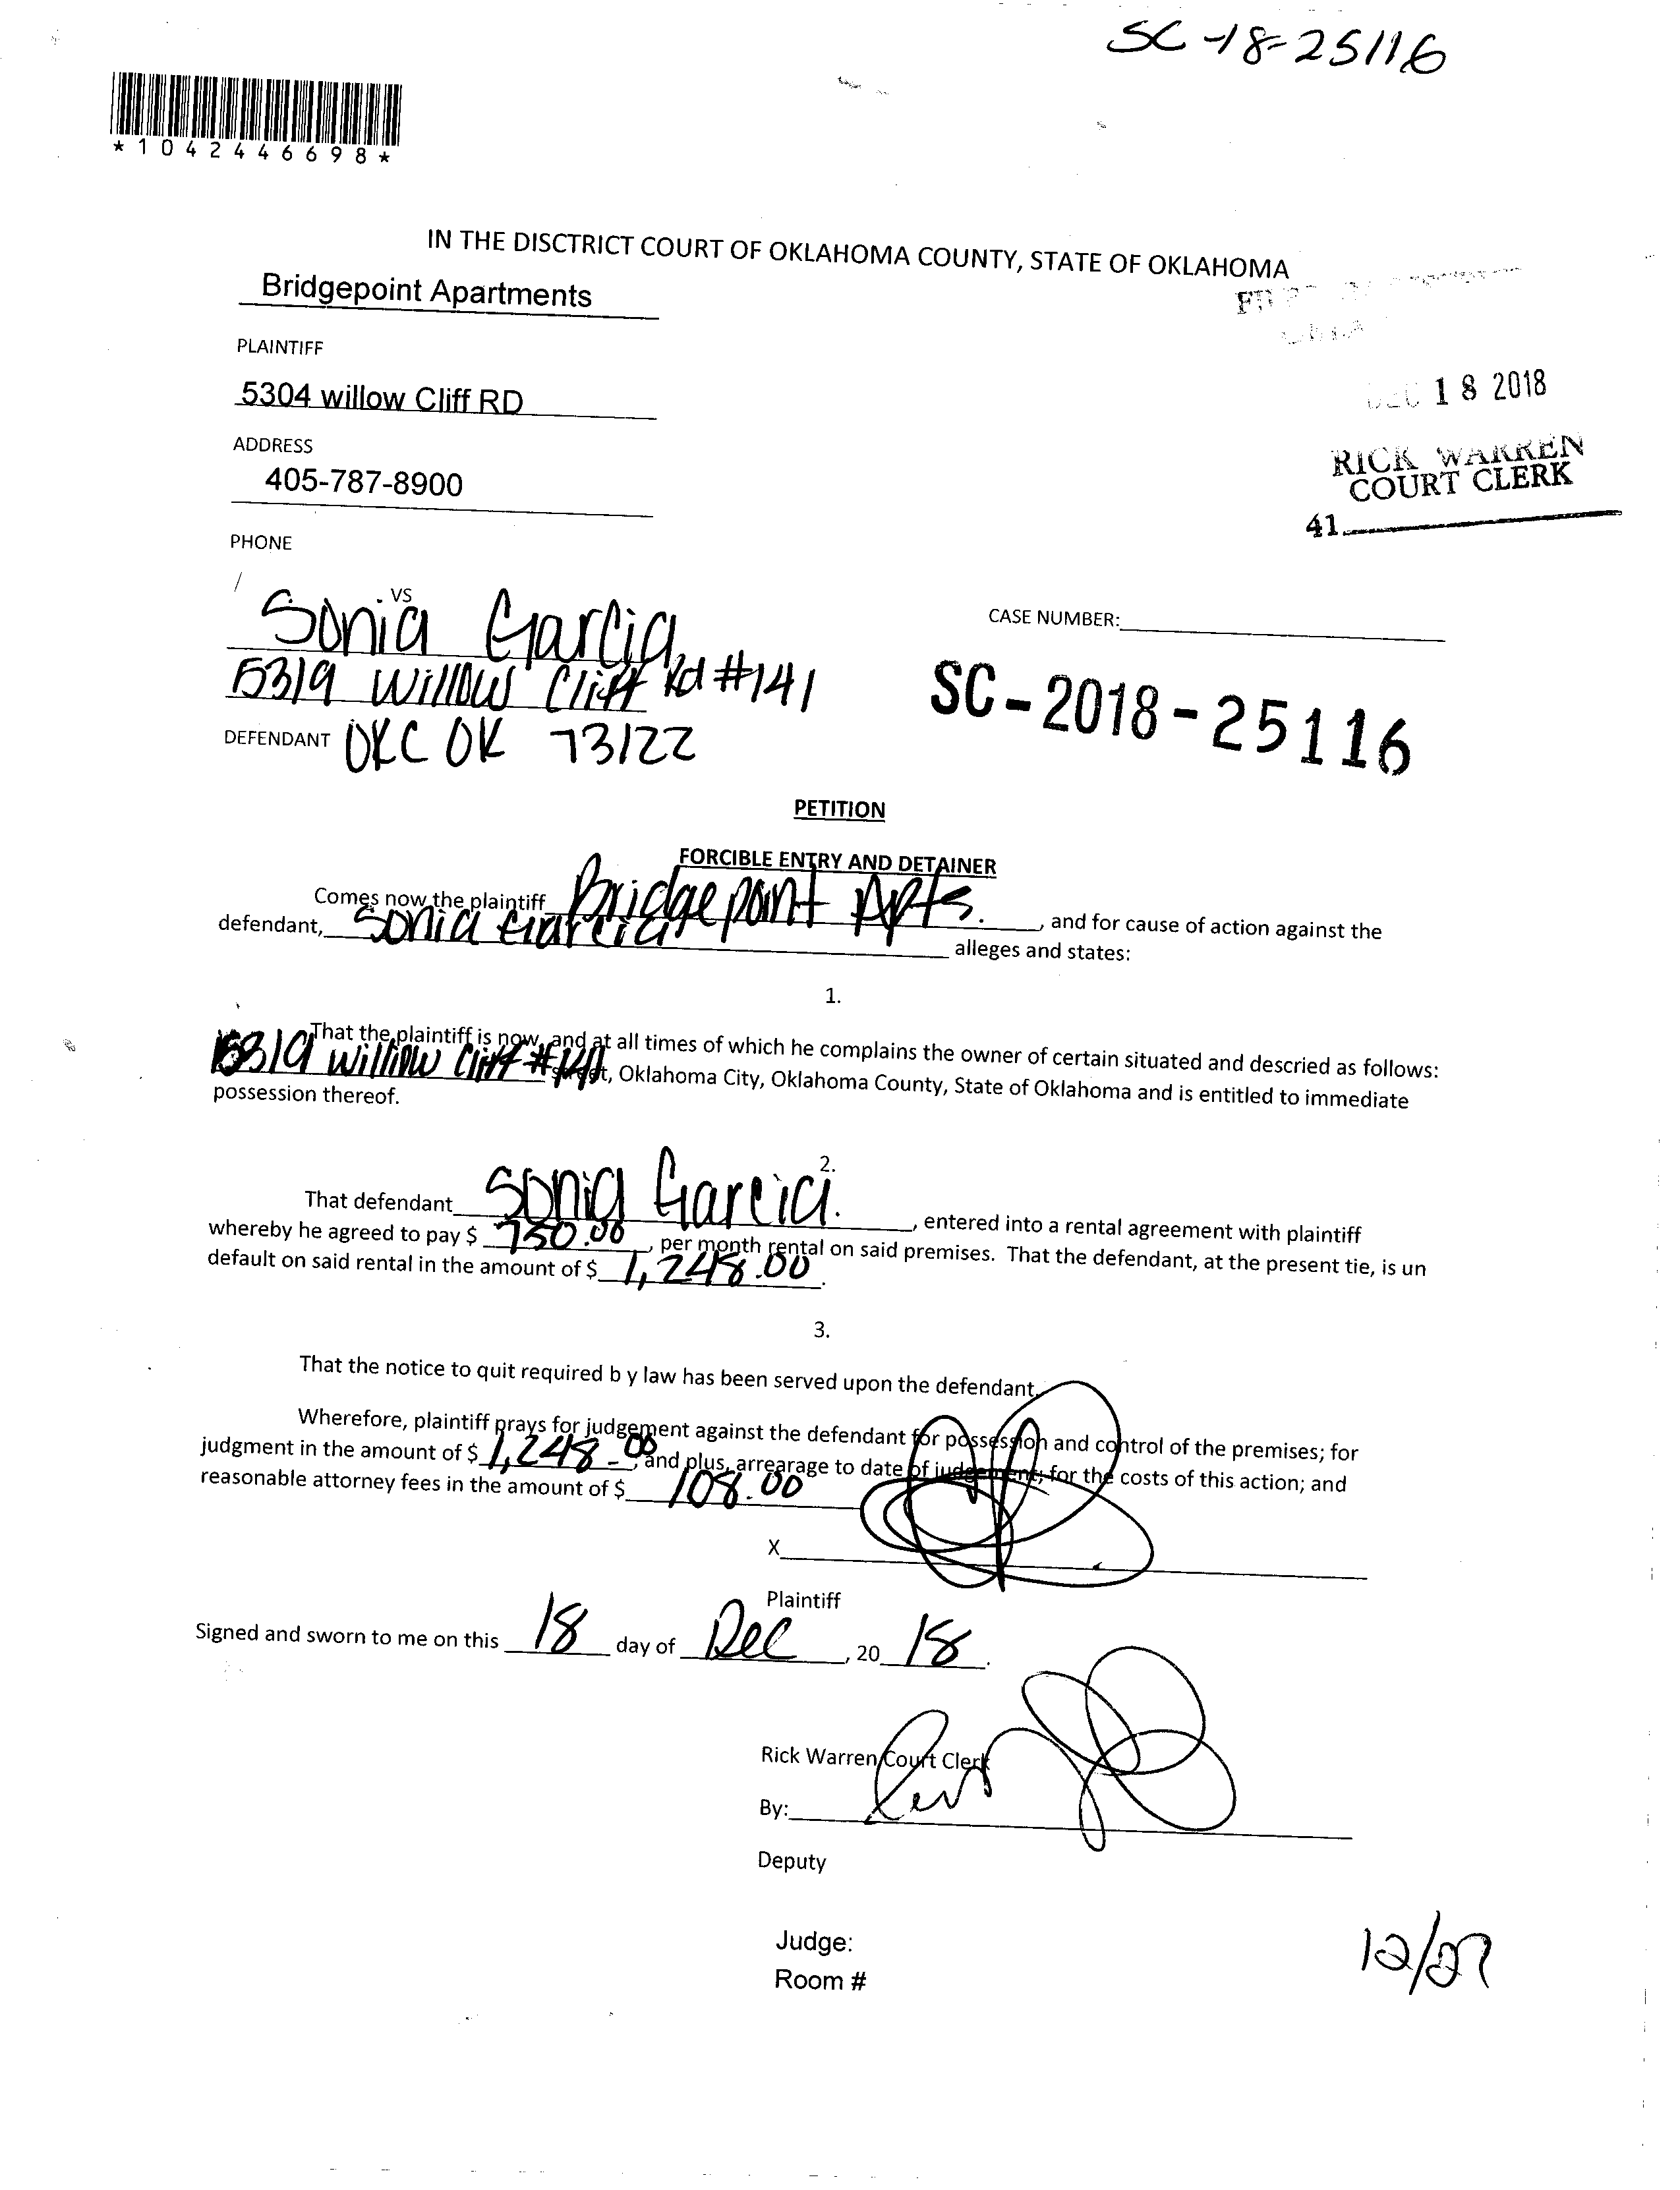 SC-18-25116
*1042446698*
IN THE DISCTRICT COURT OF OKLAHOMA COUNTY, STATE OF OKLAHOMA
Bridgepoint Apartments
PLAINTIFF
5304 willow Cliff RD
DEC 18 2018
ADDRESS
RICK WARREN
COURT CLERK
405-787-8900
41
PHONE
VS
Sonia Garcia
CASE NUMBER:
5319 Willow Cliff Rd #141
SC-2018-25116
DEFENDANT OKC OK 73122
PETITION
FORCIBLE ENTRY AND DETAINER
Comes now the plaintiff Bridgepoint Apts. , and for cause of action against the
defendant, Sonia Garcia alleges and states:
1.
That the plaintiff is now, and at all times of which he complains the owner of certain situated and descried as follows:
5319 Willow Cliff #141 street, Oklahoma City, Oklahoma County, State of Oklahoma and is entitled to immediate
possession thereof.
2.
That defendant Sonia Garcia. , entered into a rental agreement with plaintiff
whereby he agreed to pay $ 750.00 , per month rental on said premises. That the defendant, at the present tie, is un
default on said rental in the amount of $ 1,248.00 .
3.
That the notice to quit required b y law has been served upon the defendant.
Wherefore, plaintiff prays for judgement against the defendant for possession and control of the premises; for
judgment in the amount of $ 1,248.00 , and plus, arrearage to date of judgement; for the costs of this action; and
reasonable attorney fees in the amount of $ 108.00
X
Plaintiff
Signed and sworn to me on this 18 day of Dec , 20 18 .
Rick Warren Court Clerk
By:
Deputy
Judge:
Room #
12/27